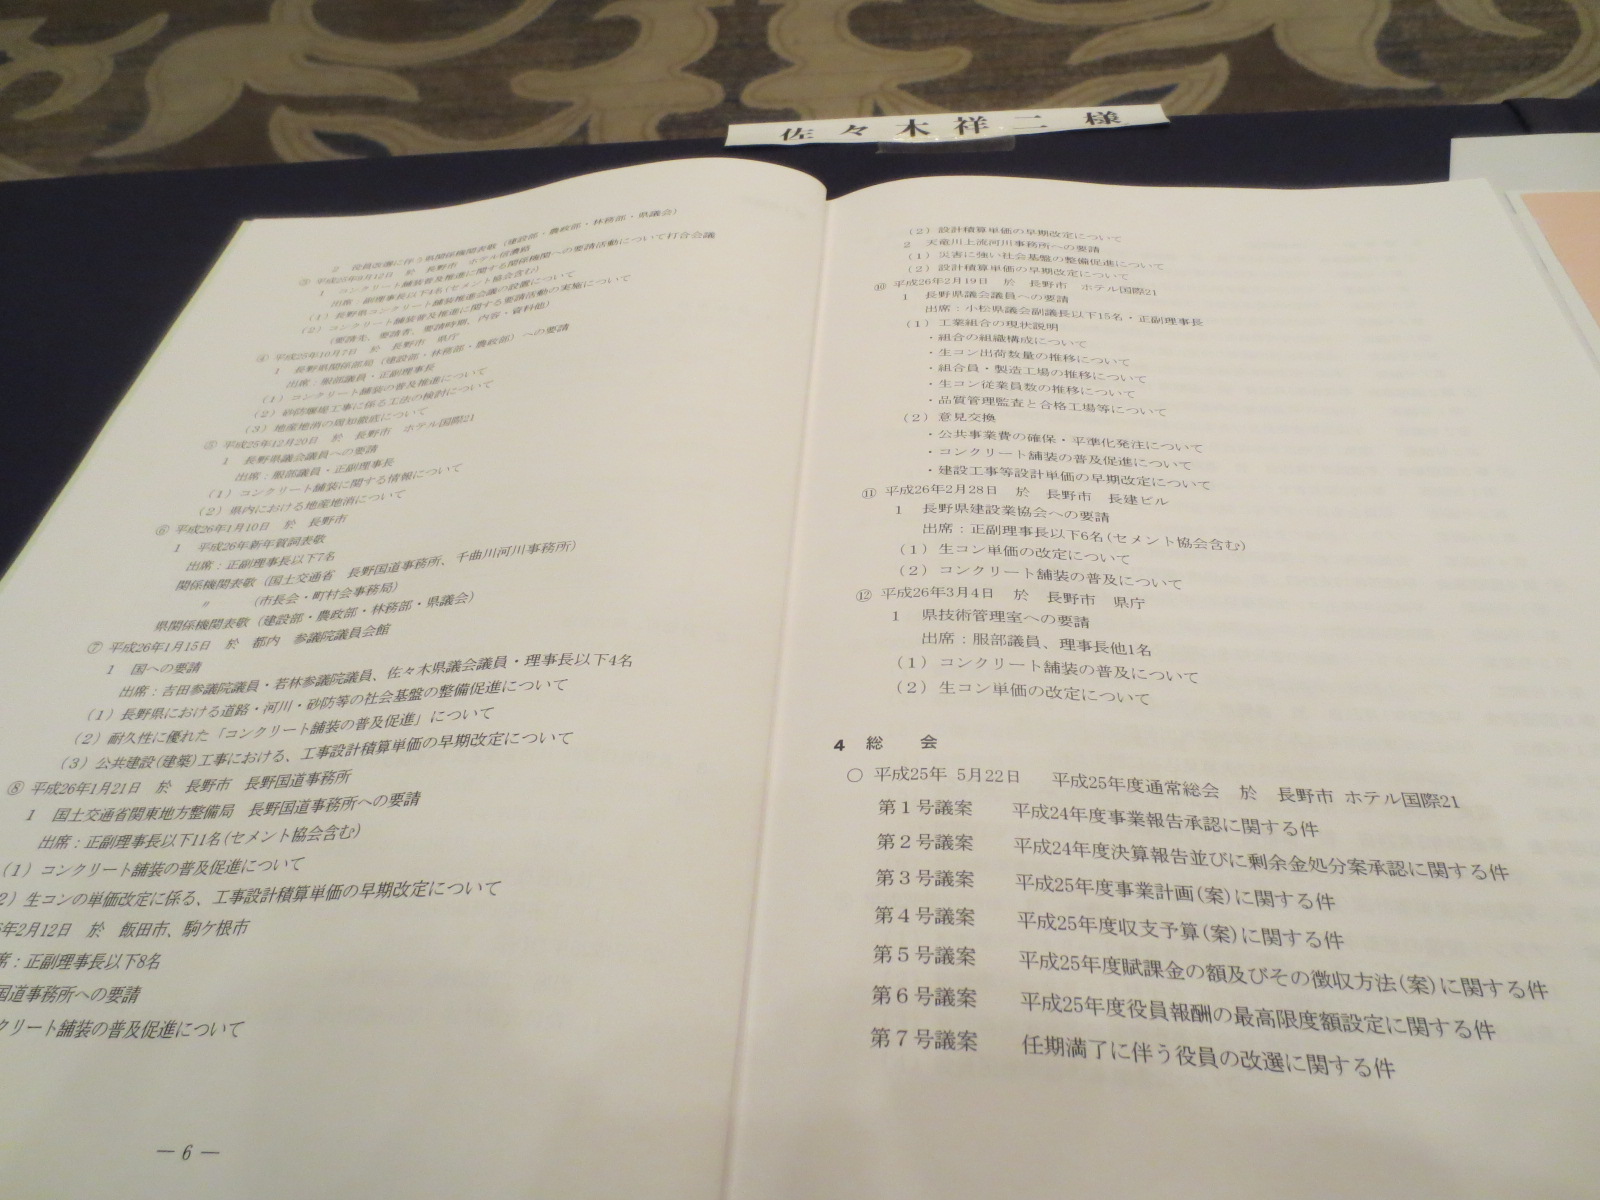 佐々木祥二 様
2 役員改選に伴う県関係機関表敬（建設部・農政部・林務部・県議会）
③ 平成25年9月12日 於 長野市 ホテル信濃路
1 コンクリート舗装普及推進に関する関係機関への要請活動について打合会議
出席：副理事長以下4名(セメント協会含む)
(1) 長野県コンクリート舗装推進会議の設置について
(2) コンクリート舗装普及推進に関する要請活動の実施について
(要請先、要請者、要請時期、内容・資料他)
④ 平成25年10月7日 於 長野市 県庁
1 長野県関係部局（建設部・林務部・農政部）への要請
出席：服部議員・正副理事長
(1) コンクリート舗装の普及推進について
(2) 砂防堰堤工事に係る工法の検討について
(3) 地産地消の周知徹底について
⑤ 平成25年12月20日 於 長野市 ホテル国際21
1 長野県議会議員への要請
出席：服部議員・正副理事長
(1) コンクリート舗装に関する情報について
(2) 県内における地産地消について
⑥ 平成26年1月10日 於 長野市
1 平成26年新年賀詞表敬
出席：正副理事長以下7名
関係機関表敬（国土交通省 長野国道事務所、千曲川河川事務所）
〃 （市長会・町村会事務局）
県関係機関表敬（建設部・農政部・林務部・県議会）
⑦ 平成26年1月15日 於 都内 参議院議員会館
1 国への要請
出席：吉田参議院議員・若林参議院議員、佐々木県議会議員・理事長以下4名
(1) 長野県における道路・河川・砂防等の社会基盤の整備促進について
(2) 耐久性に優れた「コンクリート舗装の普及促進」について
(3) 公共建設(建築)工事における、工事設計積算単価の早期改定について
⑧ 平成26年1月21日 於 長野市 長野国道事務所
1 国土交通省関東地方整備局 長野国道事務所への要請
出席：正副理事長以下11名(セメント協会含む)
(1) コンクリート舗装の普及促進について
2) 生コンの単価改定に係る、工事設計積算単価の早期改定について
年2月12日 於 飯田市、駒ケ根市
席：正副理事長以下8名
国道事務所への要請
クリート舗装の普及促進について
― 6 ―
(2) 設計積算単価の早期改定について
2 天竜川上流河川事務所への要請
(1) 災害に強い社会基盤の整備促進について
(2) 設計積算単価の早期改定について
⑩ 平成26年2月19日 於 長野市 ホテル国際21
1 長野県議会議員への要請
出席：小松県議会副議長以下15名・正副理事長
(1) 工業組合の現状説明
・組合の組織構成について
・生コン出荷数量の推移について
・組合員・製造工場の推移について
・生コン従業員数の推移について
・品質管理監査と合格工場等について
(2) 意見交換
・公共事業費の確保・平準化発注について
・コンクリート舗装の普及促進について
・建設工事等設計単価の早期改定について
⑪ 平成26年2月28日 於 長野市 長建ビル
1 長野県建設業協会への要請
出席：正副理事長以下6名(セメント協会含む)
(1) 生コン単価の改定について
(2) コンクリート舗装の普及について
⑫ 平成26年3月4日 於 長野市 県庁
1 県技術管理室への要請
出席：服部議員、理事長他1名
(1) コンクリート舗装の普及について
(2) 生コン単価の改定について
4 総 会
○ 平成25年 5月22日 平成25年度通常総会 於 長野市 ホテル国際21
第1号議案 平成24年度事業報告承認に関する件
第2号議案 平成24年度決算報告並びに剰余金処分案承認に関する件
第3号議案 平成25年度事業計画(案)に関する件
第4号議案 平成25年度収支予算(案)に関する件
第5号議案 平成25年度賦課金の額及びその徴収方法(案)に関する件
第6号議案 平成25年度役員報酬の最高限度額設定に関する件
第7号議案 任期満了に伴う役員の改選に関する件